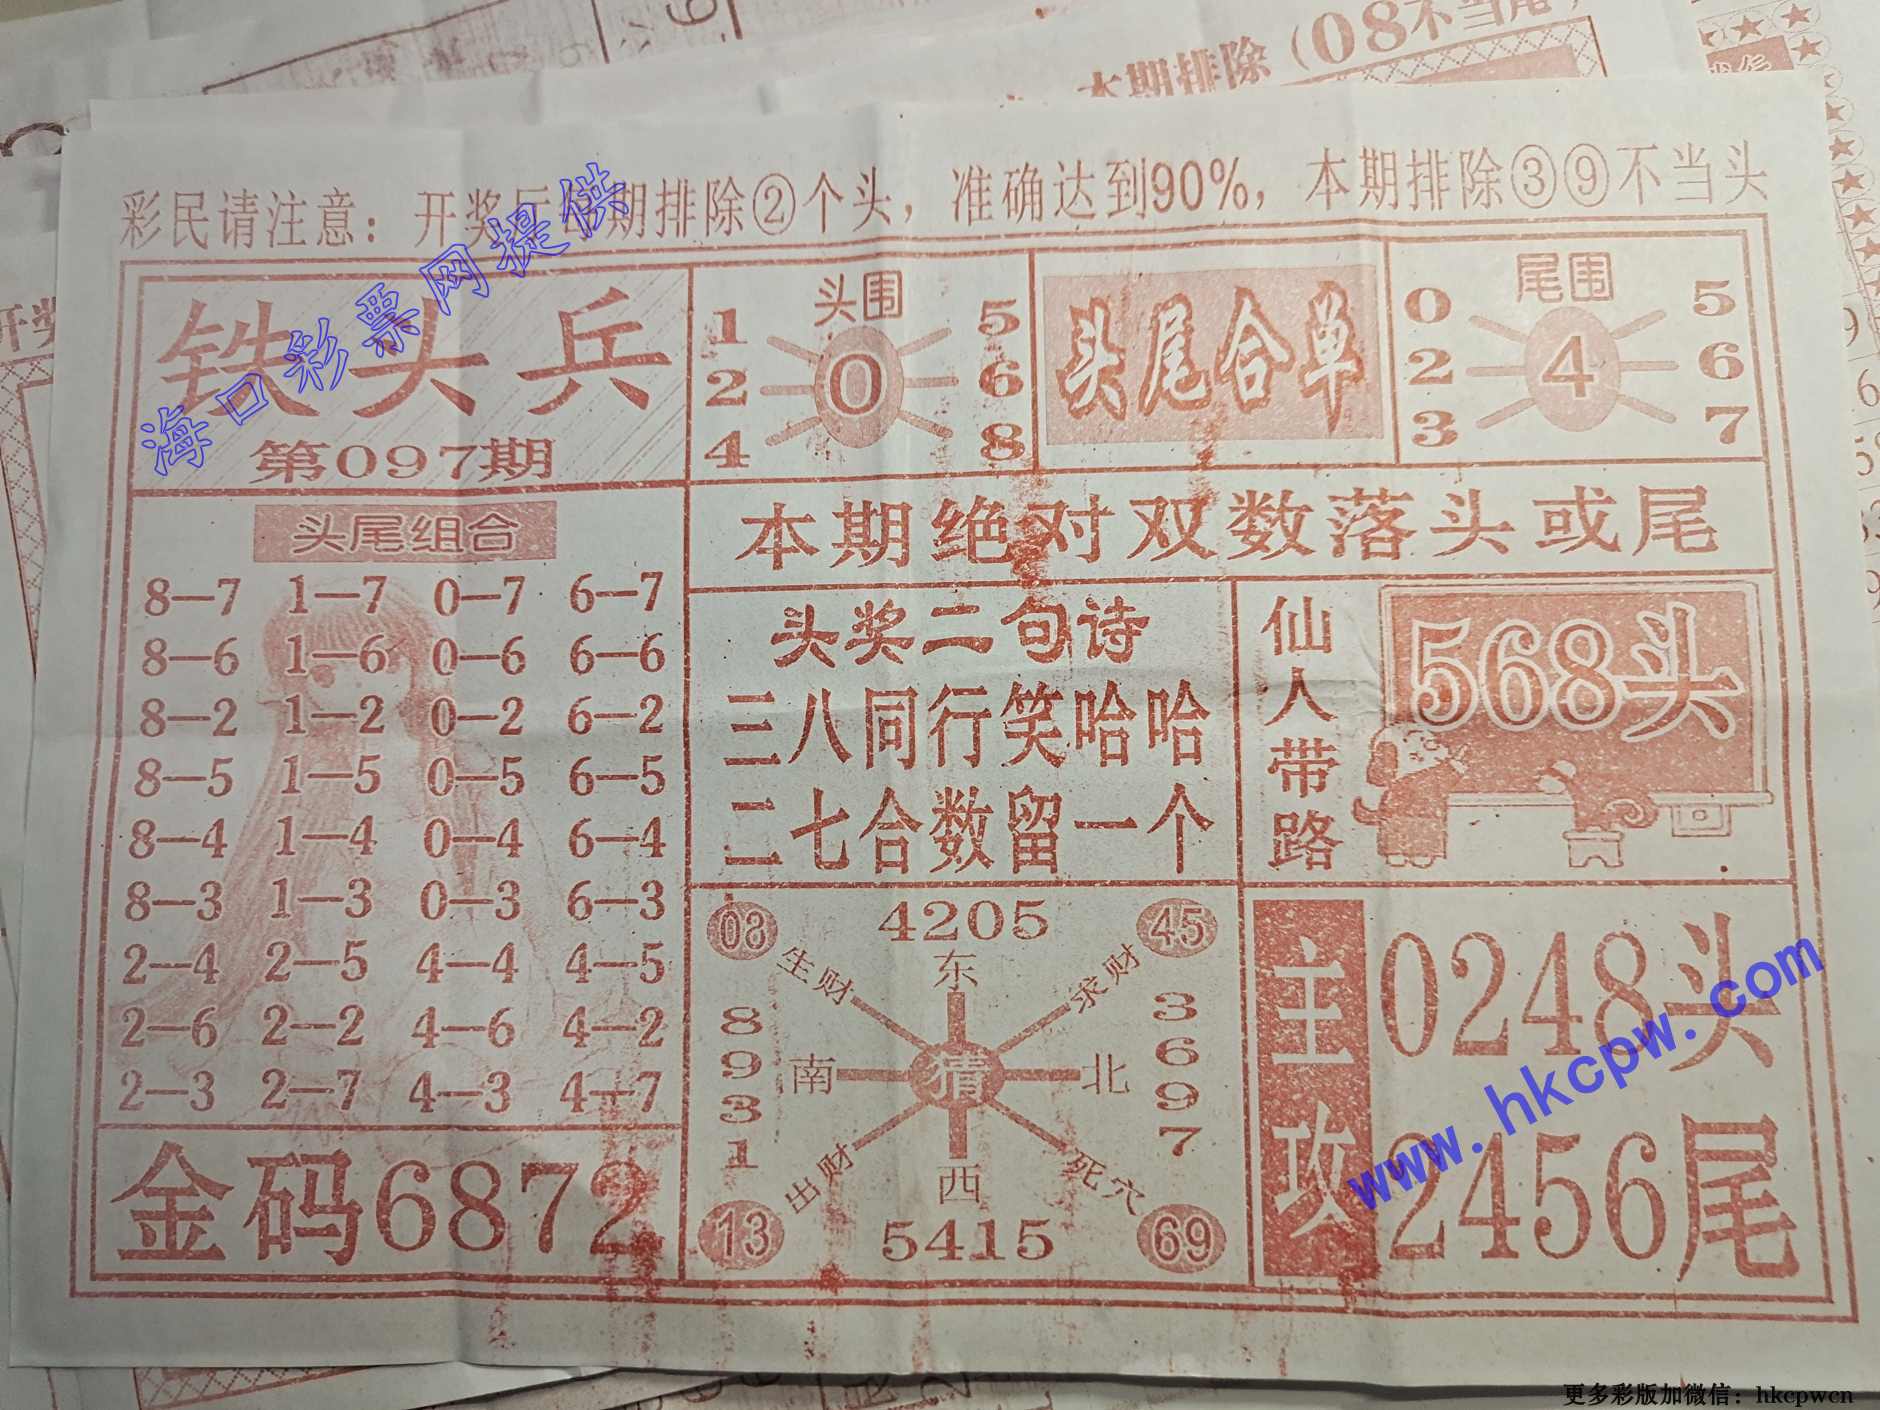 本期排除（08不当尾）
彩民请注意：开奖后每期排除②个头，准确达到90%，本期排除③⑨不当头
铁头兵
第097期
头围
1 5
2 0 6
4 8
头尾合单
尾围
0 5
2 4 6
3 7
头尾组合
8—7 1—7 0—7 6—7
8—6 1—6 0—6 6—6
8—2 1—2 0—2 6—2
8—5 1—5 0—5 6—5
8—4 1—4 0—4 6—4
8—3 1—3 0—3 6—3
2—4 2—5 4—4 4—5
2—6 2—2 4—6 4—2
2—3 2—7 4—3 4—7
金码6872
本期绝对双数落头或尾
头奖二句诗
三八同行笑哈哈
二七合数留一个
仙人带路
568头
08 4205 45
生财 东 求财
8931 南 猜 北 3697
出财 西 死穴
13 5415 69
主攻
0248头
2456尾
海口彩票网提供
www.hkcpw.com
更多彩版加微信：hkcpwcn